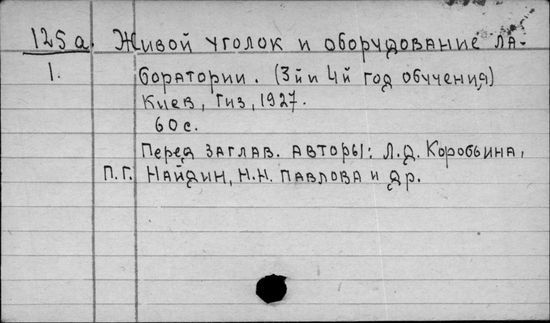 125а. Живой уголок и оборудование ла-
1. боратории. (3й и 4й год обучения)
Киев, Гиз, 1927.
60 с.
Перед заглав. авторы: Л.Д. Коробьина,
П.Г. Найдин, Н.Н. Павлова и др.